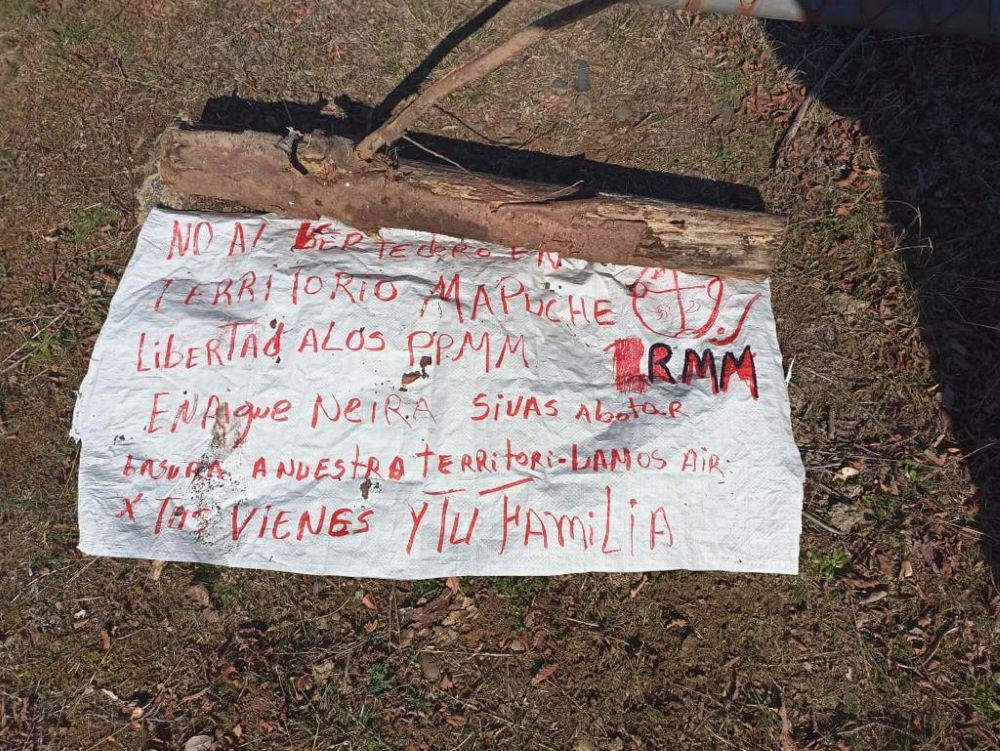 NO Al bERTEDERO EN
TERRITORIO MAPUCHE
LibERTAd ALOS PPMM
RMM
ENRique NeiRA SiVAS AbotaR
bASURA A NUESTRA TERRITORi-bAMOS AiR
X TAS VIENES Y TU FAMiLiA